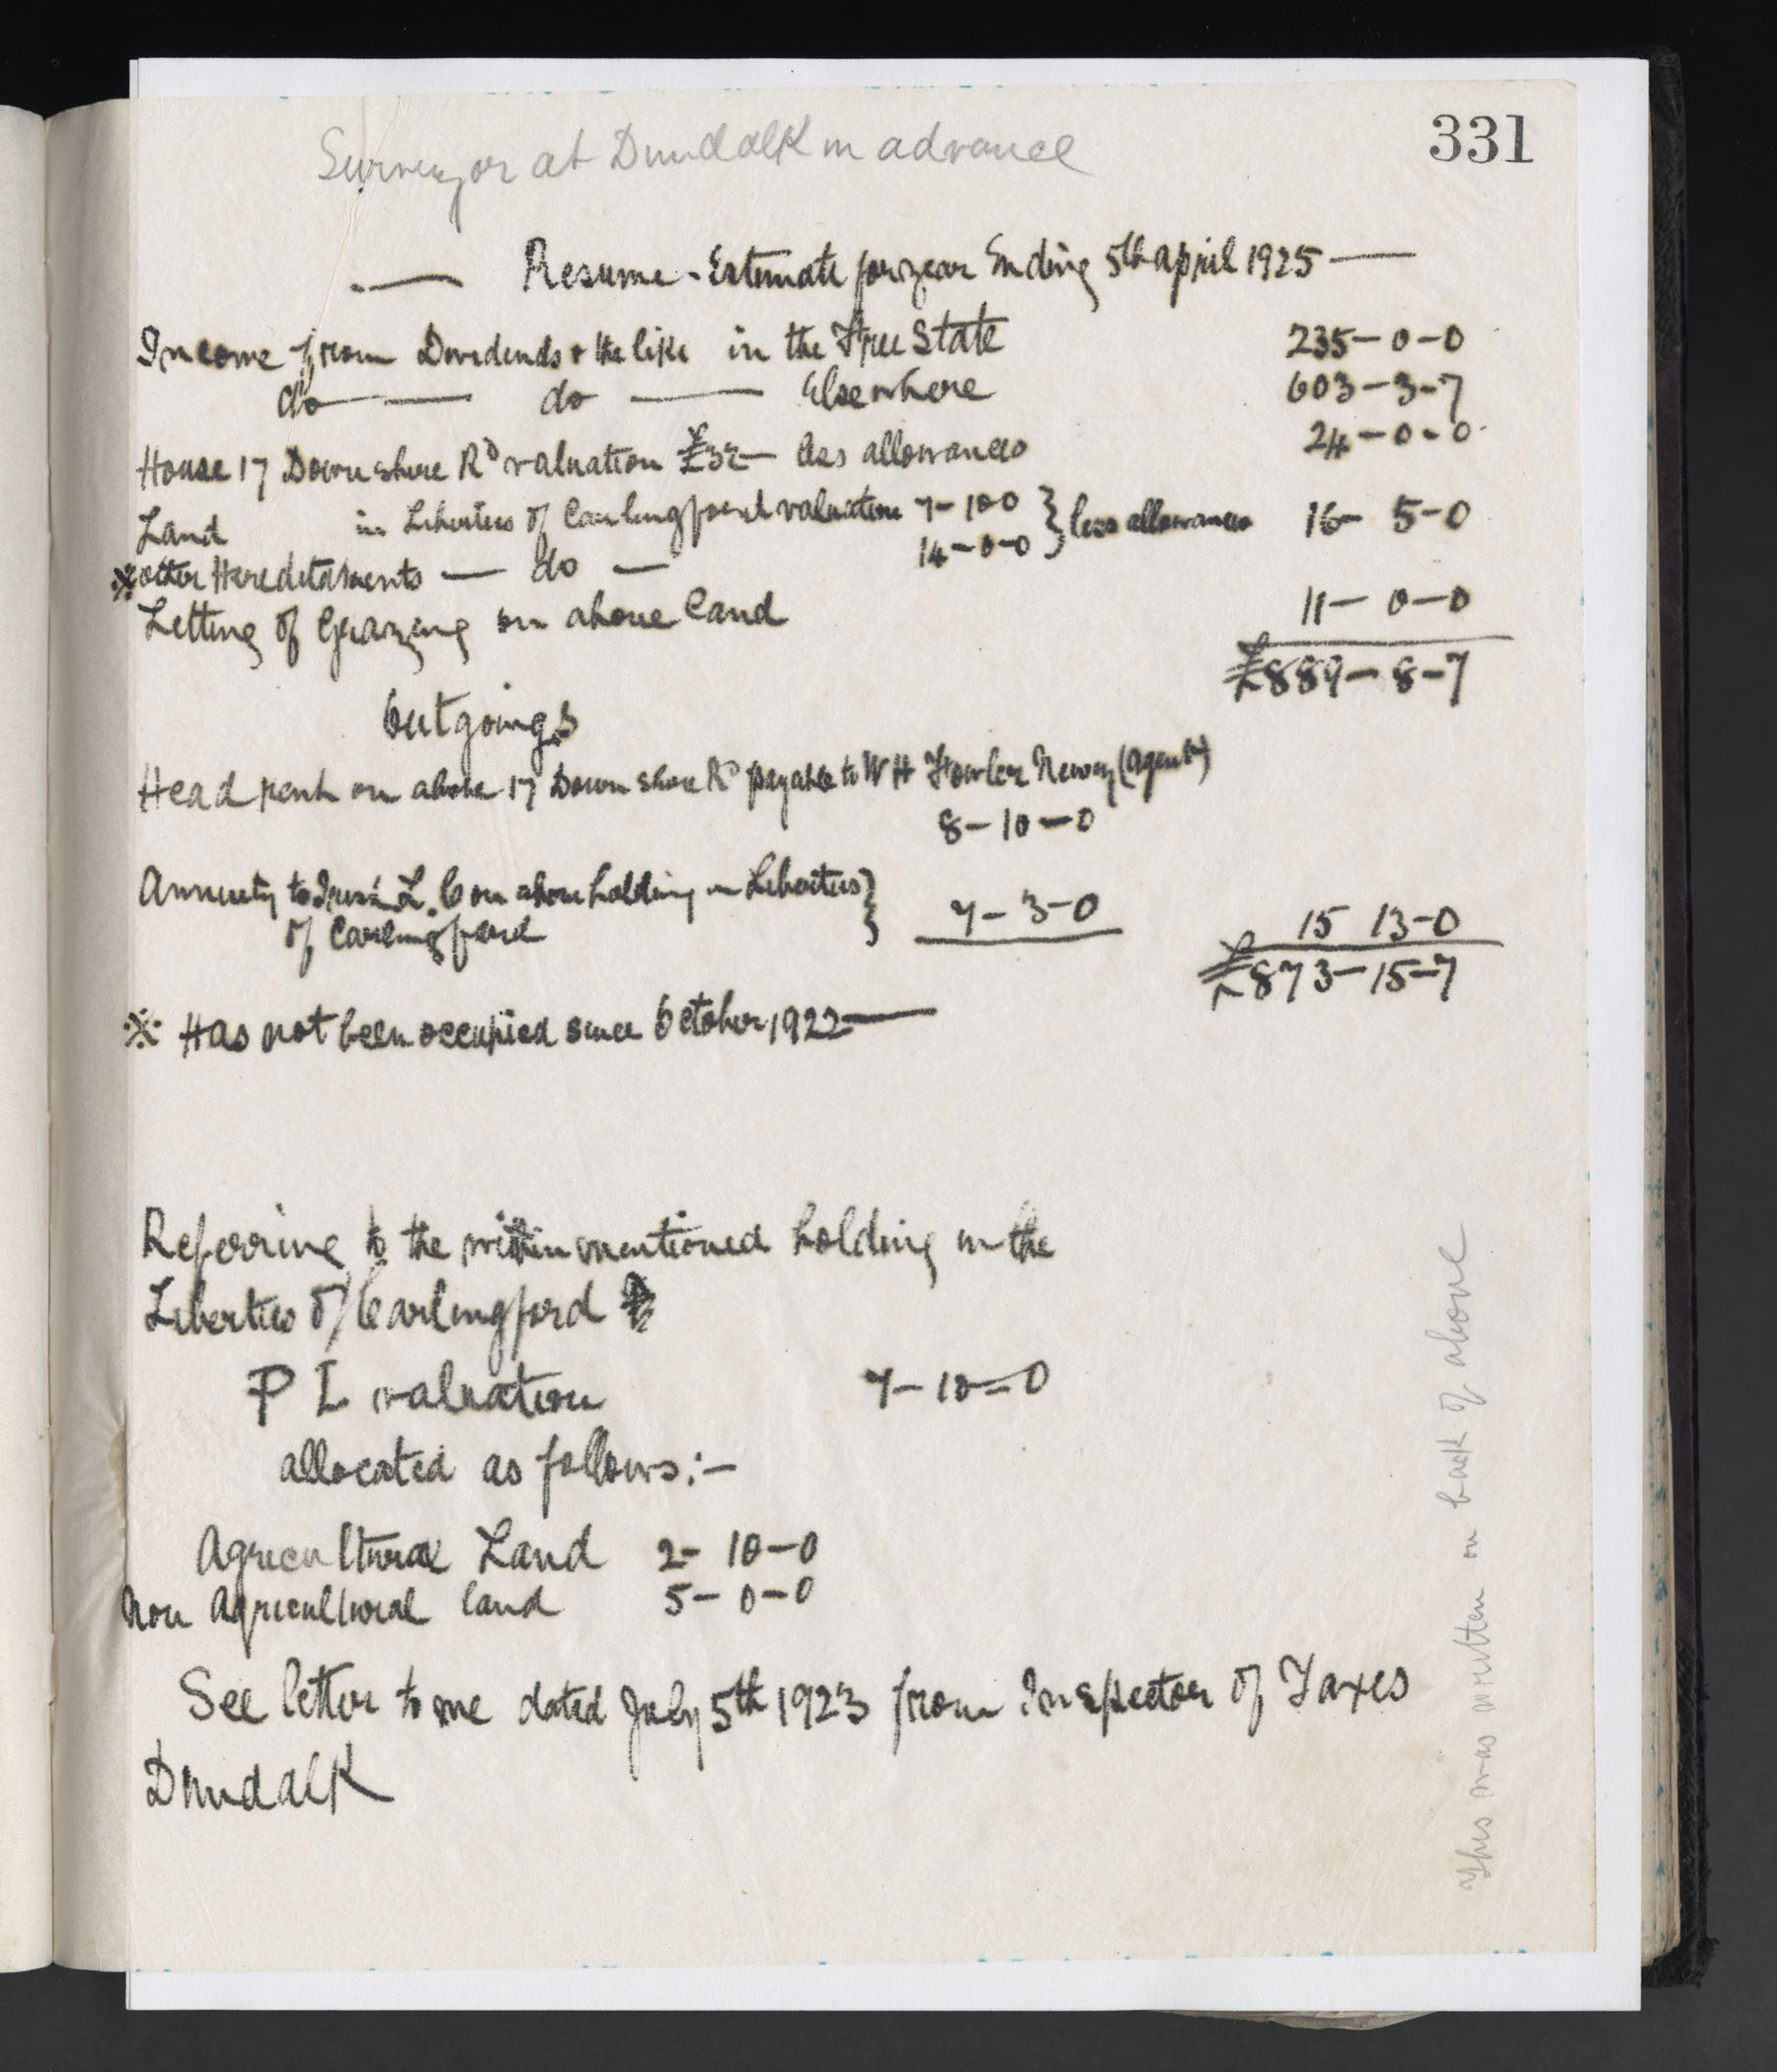 331
Surveyor at Dundalk in advance
— Resume - Estimate for year Ending 5th april 1925 —
Income from Dividends & the like in the Free State 235-0-0
do — do — Elsewhere 603-3-7
House 17 Downshire Rd valuation £32 — less allowances 24-0-0
Land in Liberties of Carlingford valuation 7-10-0 } less allowances 16-5-0
※ other Hereditaments — do — 14-0-0
Letting of Grazing on above land 11-0-0
£889-8-7
Outgoings
Head rent on above 17 Downshire Rd payable to W H Fowler Newry (agent)
8-10-0
Annuity to Irish L. C on above holding in Liberties }
of Carlingford 7-3-0 15 13-0
£873-15-7
※ Has not been occupied since October 1922 —
Referring to the within mentioned holding in the
Liberties of Carlingford
P L valuation 7-10-0
allocated as follows:-
Agricultural Land 2-10-0
Non Agricultural land 5-0-0
See letter to me dated July 5th 1923 from Inspector of Taxes
Dundalk
This was written on back of above